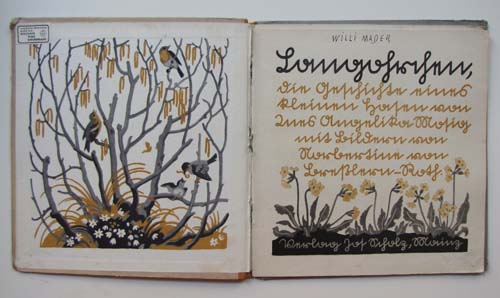 WILLI MADER
Langohrchen,
die Geschichte eines
kleinen Hasen von
Ines Angelika Mosig
mit Bildern von
Norbertine von
Breßlern-Roth
Verlag Jos Scholz, Mainz